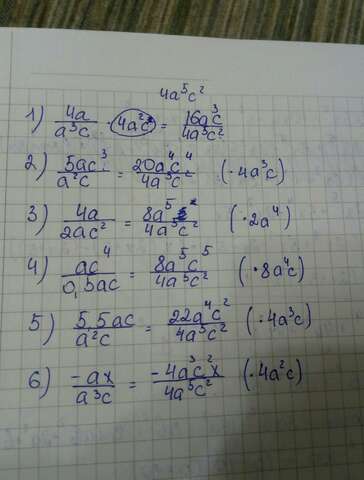 4a⁵c²
1) 4a/a³c · 4a²c = 16a³c/4a⁵c²
2) 5ac³/a²c = 20a⁴c⁴/4a⁵c² (·4a³c)
3) 4a/2ac² = 8a⁵/4a⁵c² (·2a⁴)
4) ac⁴/0,5ac = 8a⁵c⁵/4a⁵c² (·8a⁴c)
5) 5,5ac/a²c = 22a⁴c²/4a⁵c² (·4a³c)
6) -ax/a³c = -4a³c²x/4a⁵c² (·4a²c)